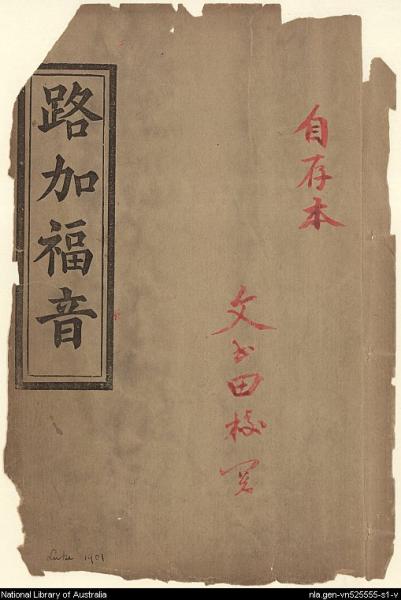 自存本
文书田校阅
路加福音
Luke 1901
National Library of Australia
nla.gen-vn525555-s1-v